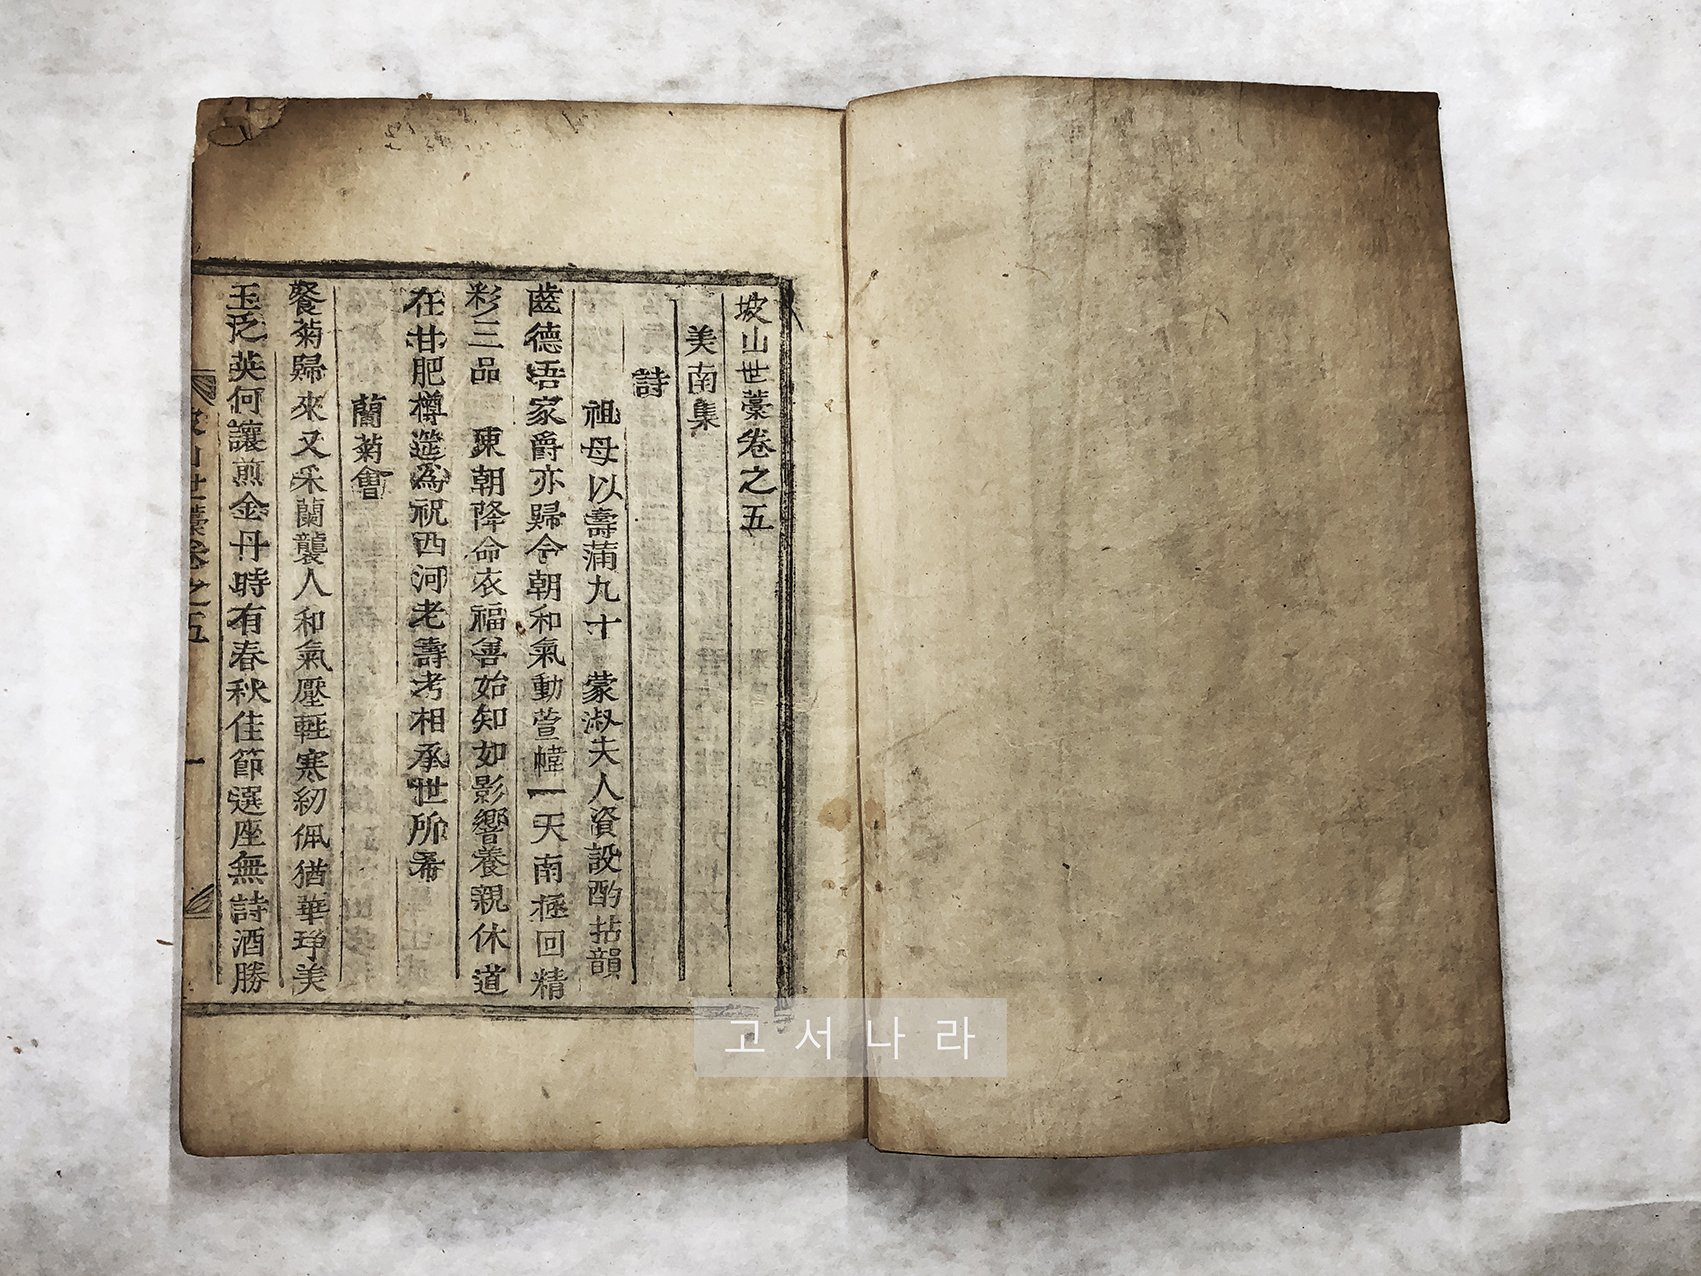 坡山世藁卷之五
美南集
詩
祖母以壽蒲九十 蒙淑夫人資設酌拈韻
齒德吾家爵亦歸今朝和氣動萱幃一天南極回精
彩三品 朝降命衣福善始知如影響養親休道
在甘肥樽筵為祝西河老壽考相承世所希
蘭菊會
餐菊歸來又采蘭襲人和氣壓輕寒紉佩猶華琤美
玉泛英何讓煎金丹時有春秋佳節選座無詩酒勝
山世藁卷之五 一
고서나라